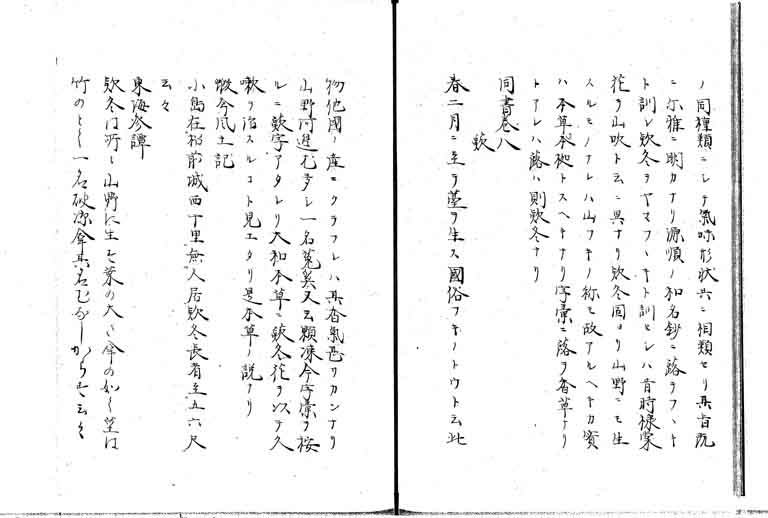 ノ同種類ニシテ氣味形状共ニ相類セリ其旨既
ニ尓雅ニ明カナリ源順ノ和名鈔ニ蕗ヲフヽキ
ト訓シ欵冬ヲヤマフヽキト訓セシハ昔時棣棠
花ヲ山吹ト云ニ異ナリ欵冬固ヨリ山野ニモ生
スルモノナレハ山フキノ称モ故アルヘキカ實
ハ本草 トスヘキナリ字彙ニ蕗ヲ香草ナリ
トアレハ蕗ハ則欵冬ナリ
同書巻八
蕻
春二月ニ至テ薹ヲ生ス國俗フキノトウト云此
物他國ノ産ニクラフレハ其香氣甚タカンナリ
山野河邊ニ多シ一名菟奚又云顆凍今字彙ヲ按
ルニ蕻字アタレリ大和本草ニ欵冬花ヲ以テ久
嗽ヲ治スルコト見エタリ是本草ノ説ナリ
今風土記
小島在 前城西丁里無人居欵冬長者至五六尺
云々
東海参譚
欵冬は所々山野に生す葉の大さ傘の如く茎は
竹のことく一名破 傘其名むなしからすと云々